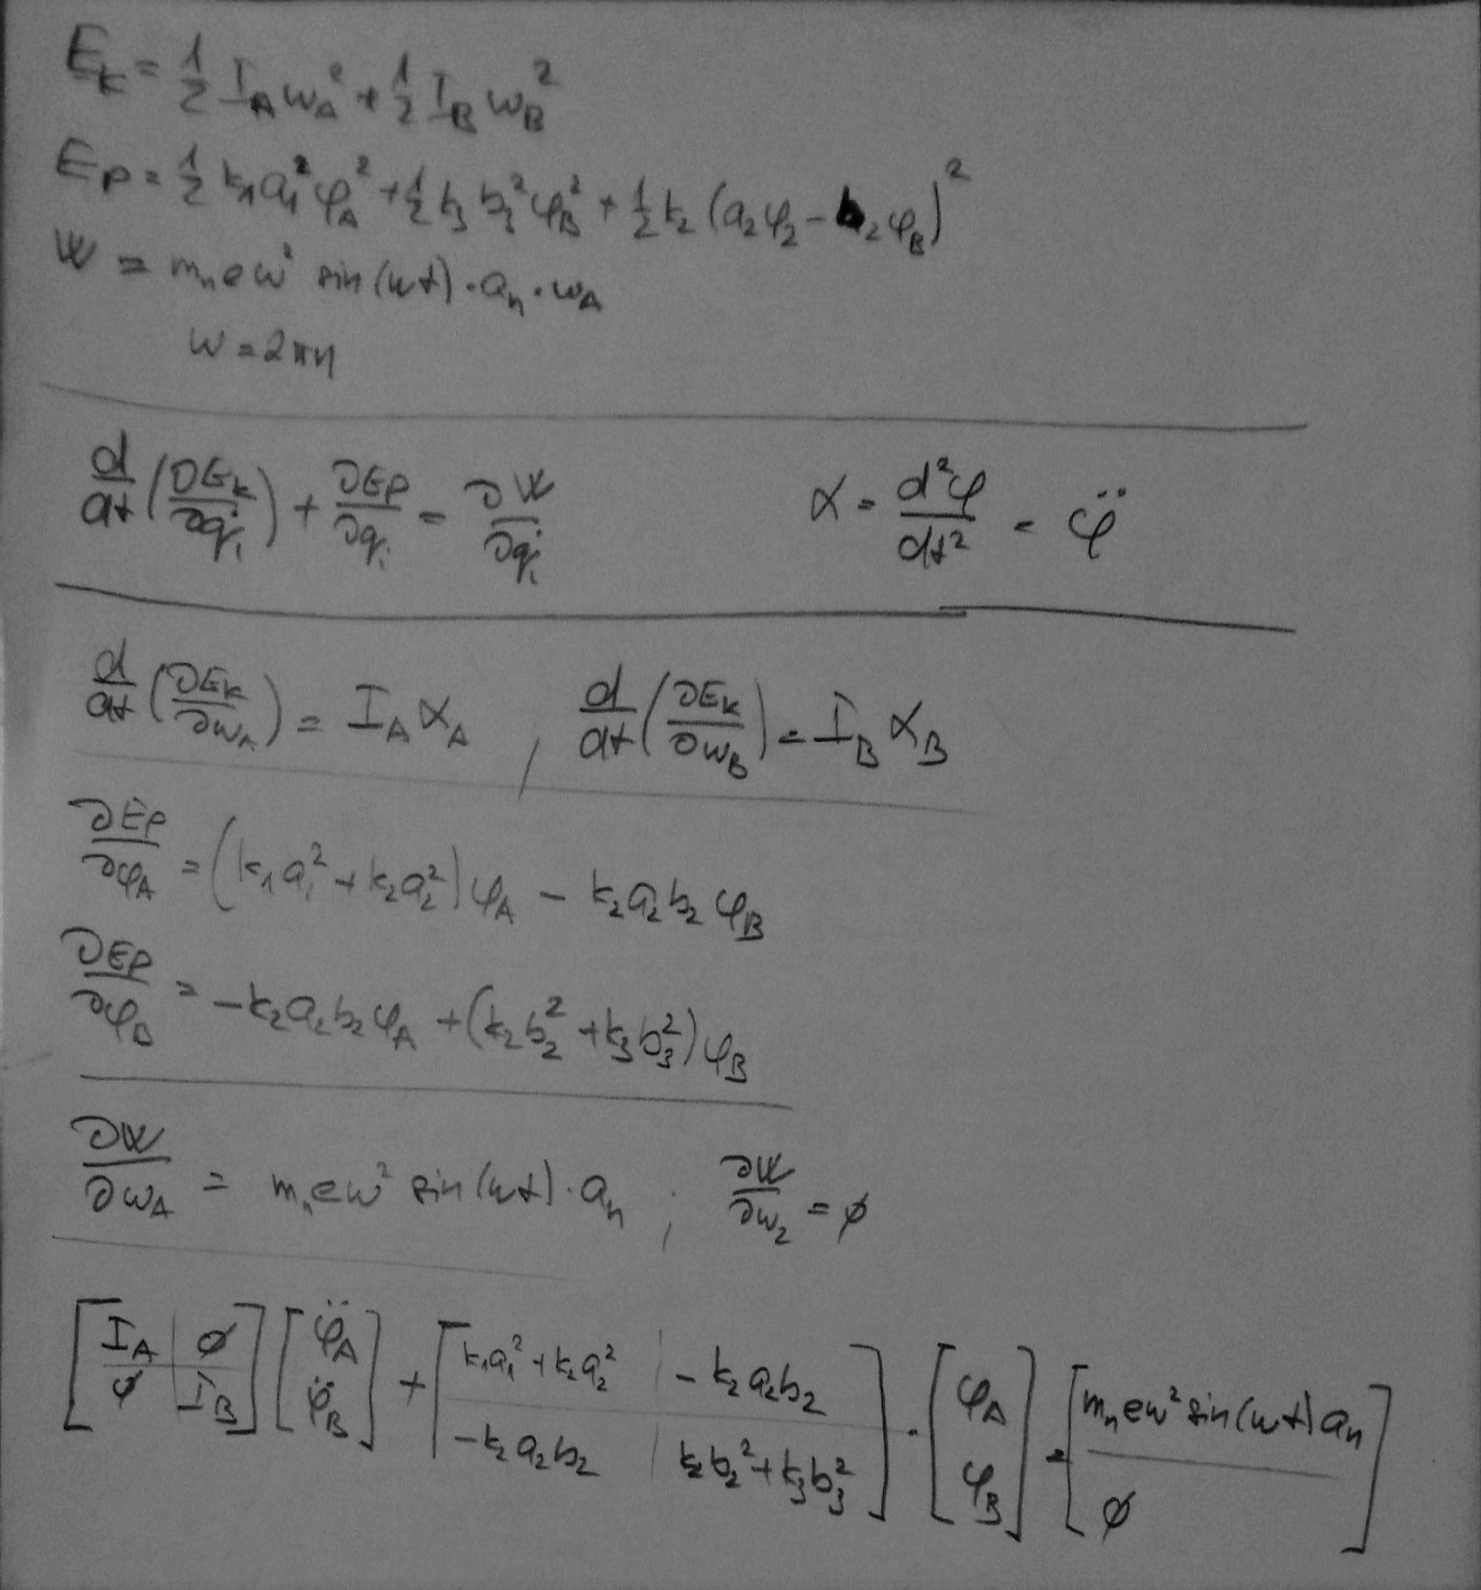 E_k = 1/2 I_A ω_A² + 1/2 I_B ω_B²
E_p = 1/2 k₁a₁²φ_A² + 1/2 k₃b₃²φ_B² + 1/2 k₂(a₂φ₂ - b₂φ_B)²
W = m_n e ω² sin(ωt) · a_n · ω_A
ω = 2πn
d/dt (∂E_k/∂q̇_i) + ∂E_p/∂q_i = ∂W/∂q̇_i    α = d²φ/dt² = φ̈
d/dt (∂E_k/∂ω_A) = I_A α_A , d/dt (∂E_k/∂ω_B) = I_B α_B
∂E_p/∂φ_A = (k₁a₁² + k₂a₂²)φ_A - k₂a₂b₂φ_B
∂E_p/∂φ_B = -k₂a₂b₂φ_A + (k₂b₂² + k₃b₃²)φ_B
∂W/∂ω_A = m_n e ω² sin(ωt) · a_n ; ∂W/∂ω₂ = ∅
[I_A | ∅ ; ∅ | I_B] [φ̈_A ; φ̈_B] + [k₁a₁² + k₂a₂² | -k₂a₂b₂ ; -k₂a₂b₂ | k₂b₂² + k₃b₃²] · [φ_A ; φ_B] = [m_n e ω² sin(ωt) a_n ; ∅]